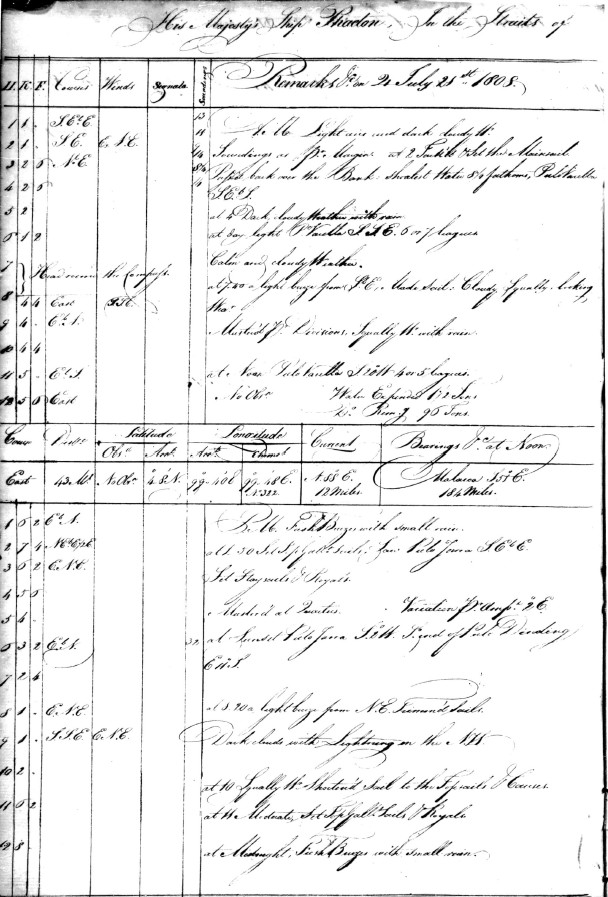 His Majesty's Ship Phaeton. In the Straits of
H. K. F. Courses Winds Signals Soundings Remarks &c. on 21 July 21st 1808.
1 1 - SEbE. 13 A.M. Light airs and dark cloudy Wr.
2 1 - S.E. E.N.E. 11 Soundings as Pr. Margin. at 2 Tack'd & Set the Mainsail
3 2 6 NbE. Passed back over the Bank. shoalest Water 8 1/4 fathoms, Pulo Varella
4 2 5 SEbS.
5 2 at 4 Dark cloudy Weather with rain
6 1 2 at day light Po. Varella SSE. 6 or 7 leagues
7 Calm and cloudy Weather.
Head round the Compass.
8 4 4 East at 7.40 a light breeze from SE. Made Sail. Cloudy Squally looking
Wr.
9 4 - Muster'd Pr. Divisions. Squally Wr. with rain
10 4 4
11 5 - at Noon Pulo Varella 4 or 5 leagues.
12 5 6 East No Obsn. Water Expended 1 1/2 Tons
Do. Remg. 96 Tons.
Course Distce. Latitude Longitude Current Bearings &c. at Noon
Obsn. Acct. Acct. Chronor.
East 43 Ms. No Obsn. N. 99° 40' E. 99° 48 E. N. 58 E. Malacca S 51 E.
No. 322 12 Miles. 184 Miles.
1 6 2 P.M. Fresh Breezes with small rain.
2 7 4 at 1.30 Set Topgallt. Sails. Saw Pulo Jarra SEbE.
3 6 2 E.N.E. Set Staysails & Royals.
4 5 6
5 4 - Muster'd at Quarters. Variation Pr. Ampe. 2 E.
6 3 2 32 at Sunset Pulo Jarra end of Pulo Dinding
7 2 4 E
8 1 - E.N.E. at 8.20 a light breeze from N.E. Trimm'd Sails.
9 1 - S.S.E. E.N.E. Dark clouds with Lightning in the NW
10 2 - at 10 Squally Wr. Shorten'd Sail to the Topsails & Courses
11 6 2 at 11 Moderate, Set Topgallt. Sails & Royals
12 8 - at Midnight. Fresh Breezes with small rain.